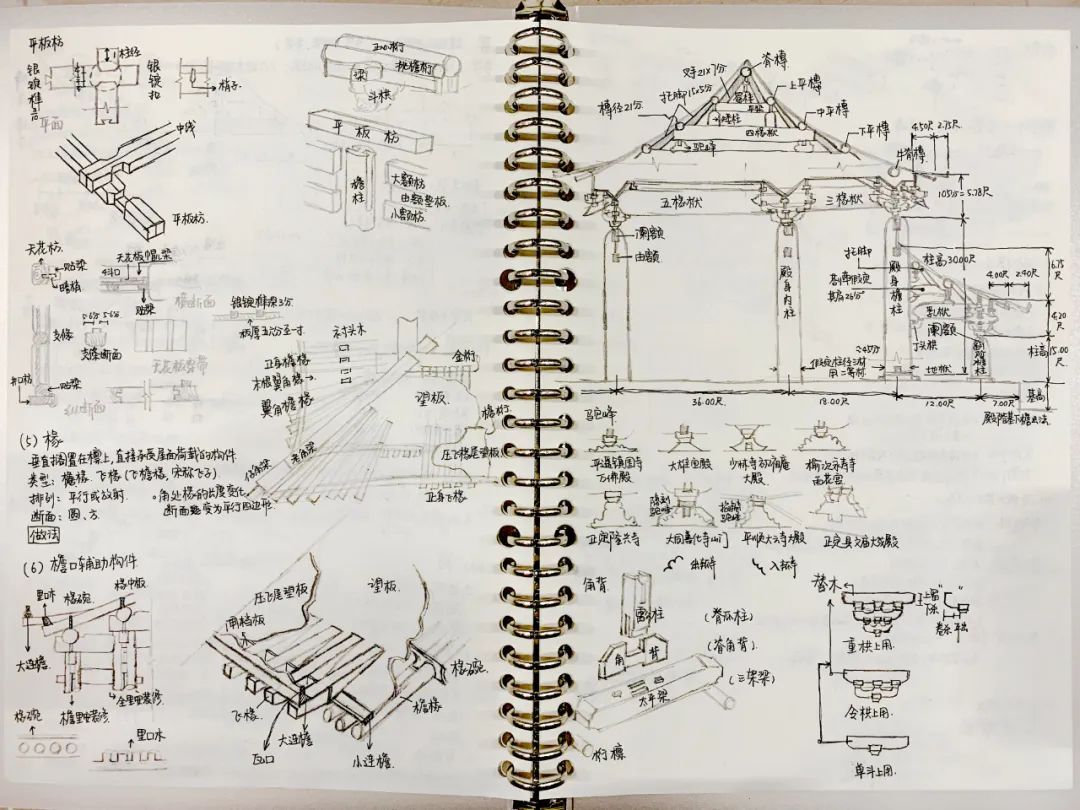 平板枋
柱径
银锭榫
银锭扣
梢子
平面
中线
平板枋.
正心桁
挑檐桁
梁
斗栱
平板枋
檐柱
大额枋
由额垫板
小额枋
天花枋.
贴梁
暗梢
天花板
帽儿梁
4斗口
贴梁
横断面
支條
支條断面
井口枋
贴梁
纵断面
银锭榫深3分.
板厚五六分至一寸
衬头木
正身檐椽
翼角檐椽
金桁
望板
檐桁
压飞檐尾望板
老角梁
仔角梁
正身飞椽
(5) 椽
垂直搁置在檩上,直接承受屋面荷载的构件
类型: 檐椽. 飞椽(飞檐椽, 宋称飞子)
排列: 平行或放射.
断面: 圆. 方.
做法
(6) 檐口辅助构件
里口
椽碗
椽中板
大连檐
椽碗
檐里装修
金里装修
里口木
压飞尾望板
望板.
闸档板
椽碗
飞椽.
檐椽
瓦口
大连檐
小连檐.
脊槫
叉手21×7分
上平槫
托脚15×5分
槫径21分.
中平槫
平梁
四椽栿
驼峰
下平槫
牛脊槫
4.50尺
2.75尺
105分=5.78尺
五椽栿
三椽栿
阑额
由额
殿身内柱
殿身檐柱
柱高30.00尺
托脚
4.00尺
2.40尺
6.75尺
4.20尺
乳栿
阑额
丁头栱
副阶檐柱
柱高15.00尺
地栿
基高
36.00尺.
18.00尺
12.00尺
7.00尺
驼峰
平遥镇国寺
万佛殿
大雄宝殿
少林寺初祖庵
大殿
榆次永寿寺
雨花宫
正定隆兴寺
大同善化寺山门
平顺大云寺大殿
正定县文庙大成殿
出瓣
入瓣
角背
脊瓜柱
角
背
太平梁
(脊瓜柱)
(脊角背)
(三架梁)
桁檩
替木
重栱上用.
令栱上用.
单斗上用.